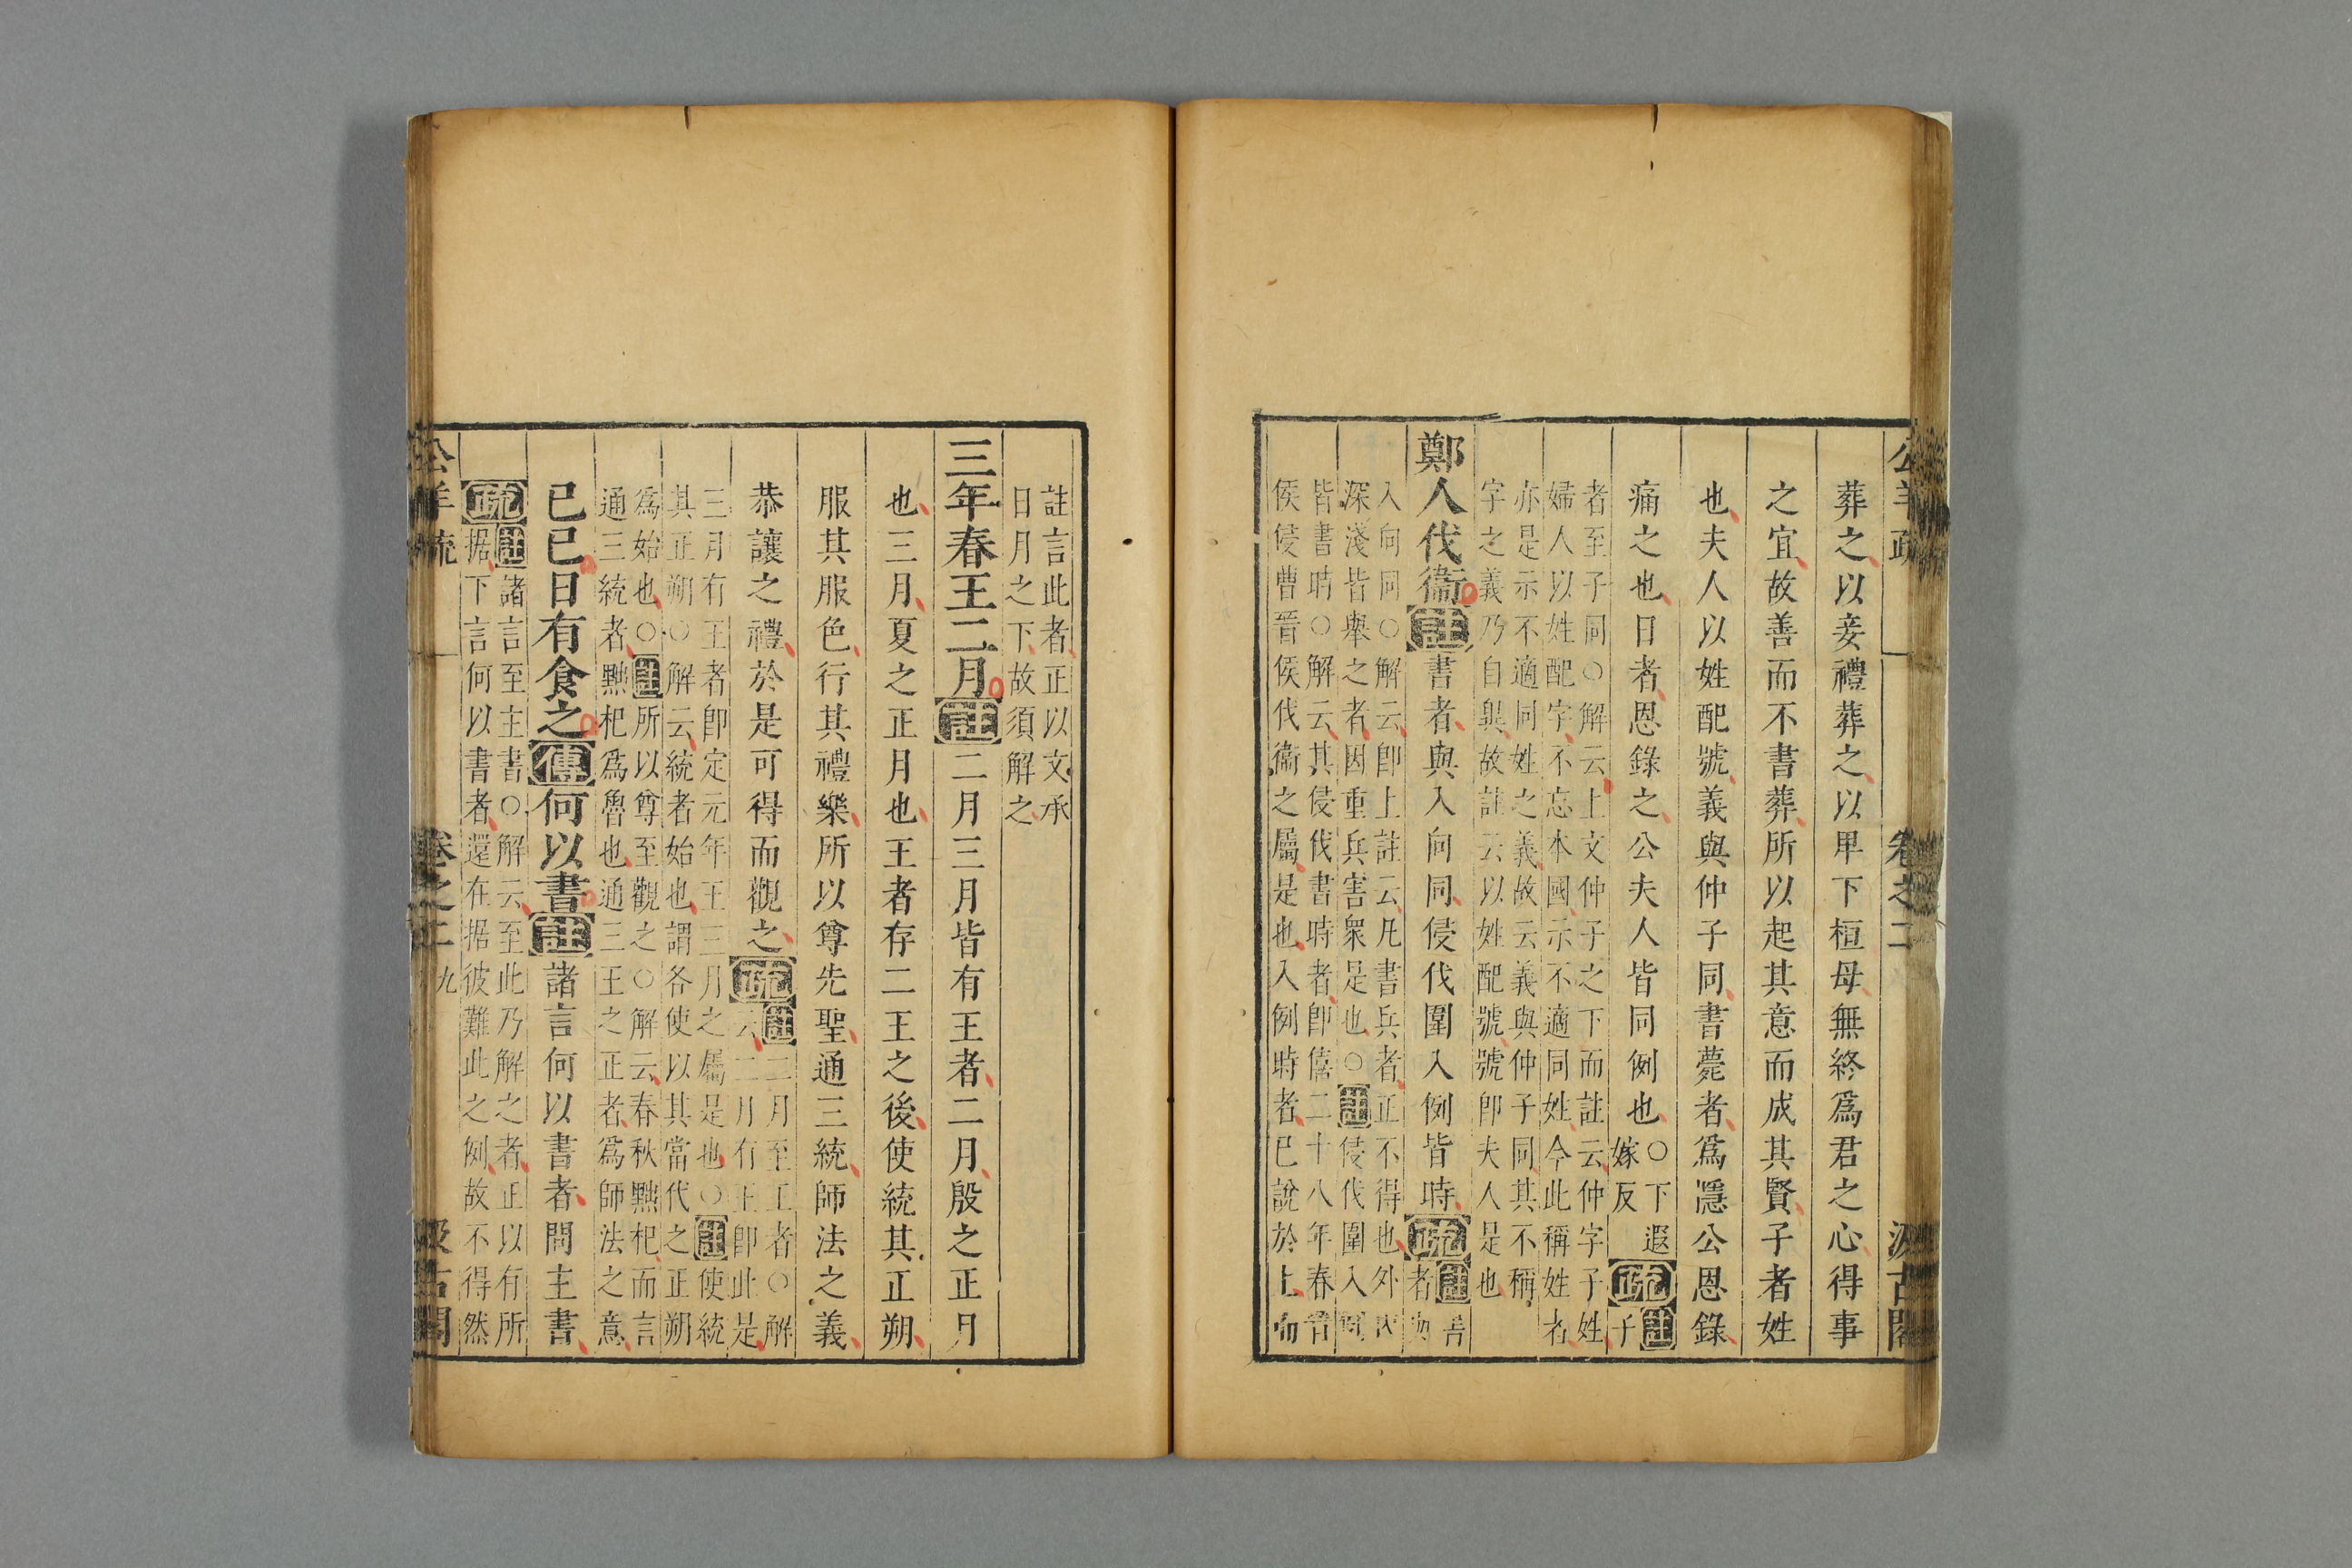 公羊疏 卷之二 汲古閣
葬之以妾禮葬之以卑下桓母無終爲君之心得事
之宜故善而不書葬所以起其意而成其賢子者姓
也夫人以姓配號義與仲子同書薨者爲隱公恩錄
痛之也日者恩錄之公夫人皆同例也○下遐
嫁反
疏註
子
者至子同○解云上文仲子之下而註云仲字子姓
婦人以姓配字不忘本國示不適同姓今此稱姓者
亦是示不適同姓之義故云義與仲子同其不稱
字之義乃自與故註云以姓配號號卽夫人是也
鄭人伐衞註書者與入向同侵伐圍入例皆時疏註書
者與
入向同○解云卽上註云凡書兵者正不得也外內
深淺皆舉之者因重兵害衆是也○註侵伐圍入例
皆書時○解云其侵伐書時者卽僖二十八年春晉
侯侵曹晉侯伐衞之屬是也入例時者已說於上而
註言此者正以文承
日月之下故須解之
三年春王二月註二月三月皆有王者二月殷之正月
也三月夏之正月也王者存二王之後使統其正朔
服其服色行其禮樂所以尊先聖通三統師法之義
恭讓之禮於是可得而觀之疏註二月至王者○解
云二月有王卽此是
三月有王者卽定元年王三月之屬是也○註使統
其正朔○解云統者始也謂各使以其當代之正朔
爲始也○註所以尊至觀之○解云春秋黜杞而言
通三統者黜杞爲魯也通三王之正者爲師法之意
己巳日有食之傳何以書註諸言何以書者問主書
疏註諸言至主書○解云至此乃解之者正以有所
据下言何以書者還在据彼難此之例故不得然
公羊疏 卷之二 九 汲古閣